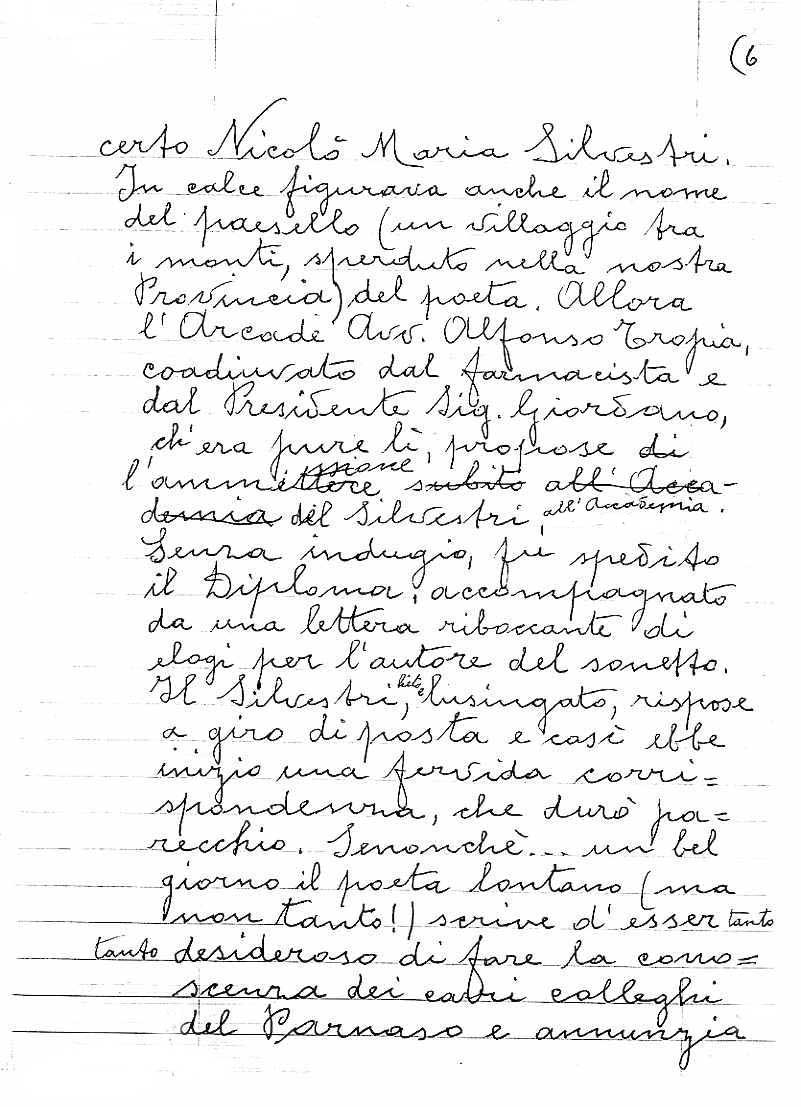 (6
certo Nicolò Maria Silvestri.
In calce figurava anche il nome
del paesello (un villaggio fra
i monti, sperduto nella nostra
Provincia) del poeta. Allora
l'Arcade Avv. Alfonso Tropia,
coadiuvato dal farmacista e
dal Presidente Sig. Giordano,
ch'era pure lì, propose di
ssione
l'ammettere subito all'Acca-
demia del Silvestri, all'Accademia.
Senza indugio, fu spedito
il Diploma, accompagnato
da una lettera riboccante di
elogi per l'autore del sonetto.
Il Silvestri, lusingato, rispose
a giro di posta e così ebbe
inizio una fervida corri=
spondenza, che durò pa=
recchio. Senonchè... un bel
giorno il poeta lontano (ma
non tanto!) scrive d'esser tanto
tanto desideroso di fare la cono=
scenza dei cari colleghi
del Parnaso e annunzia